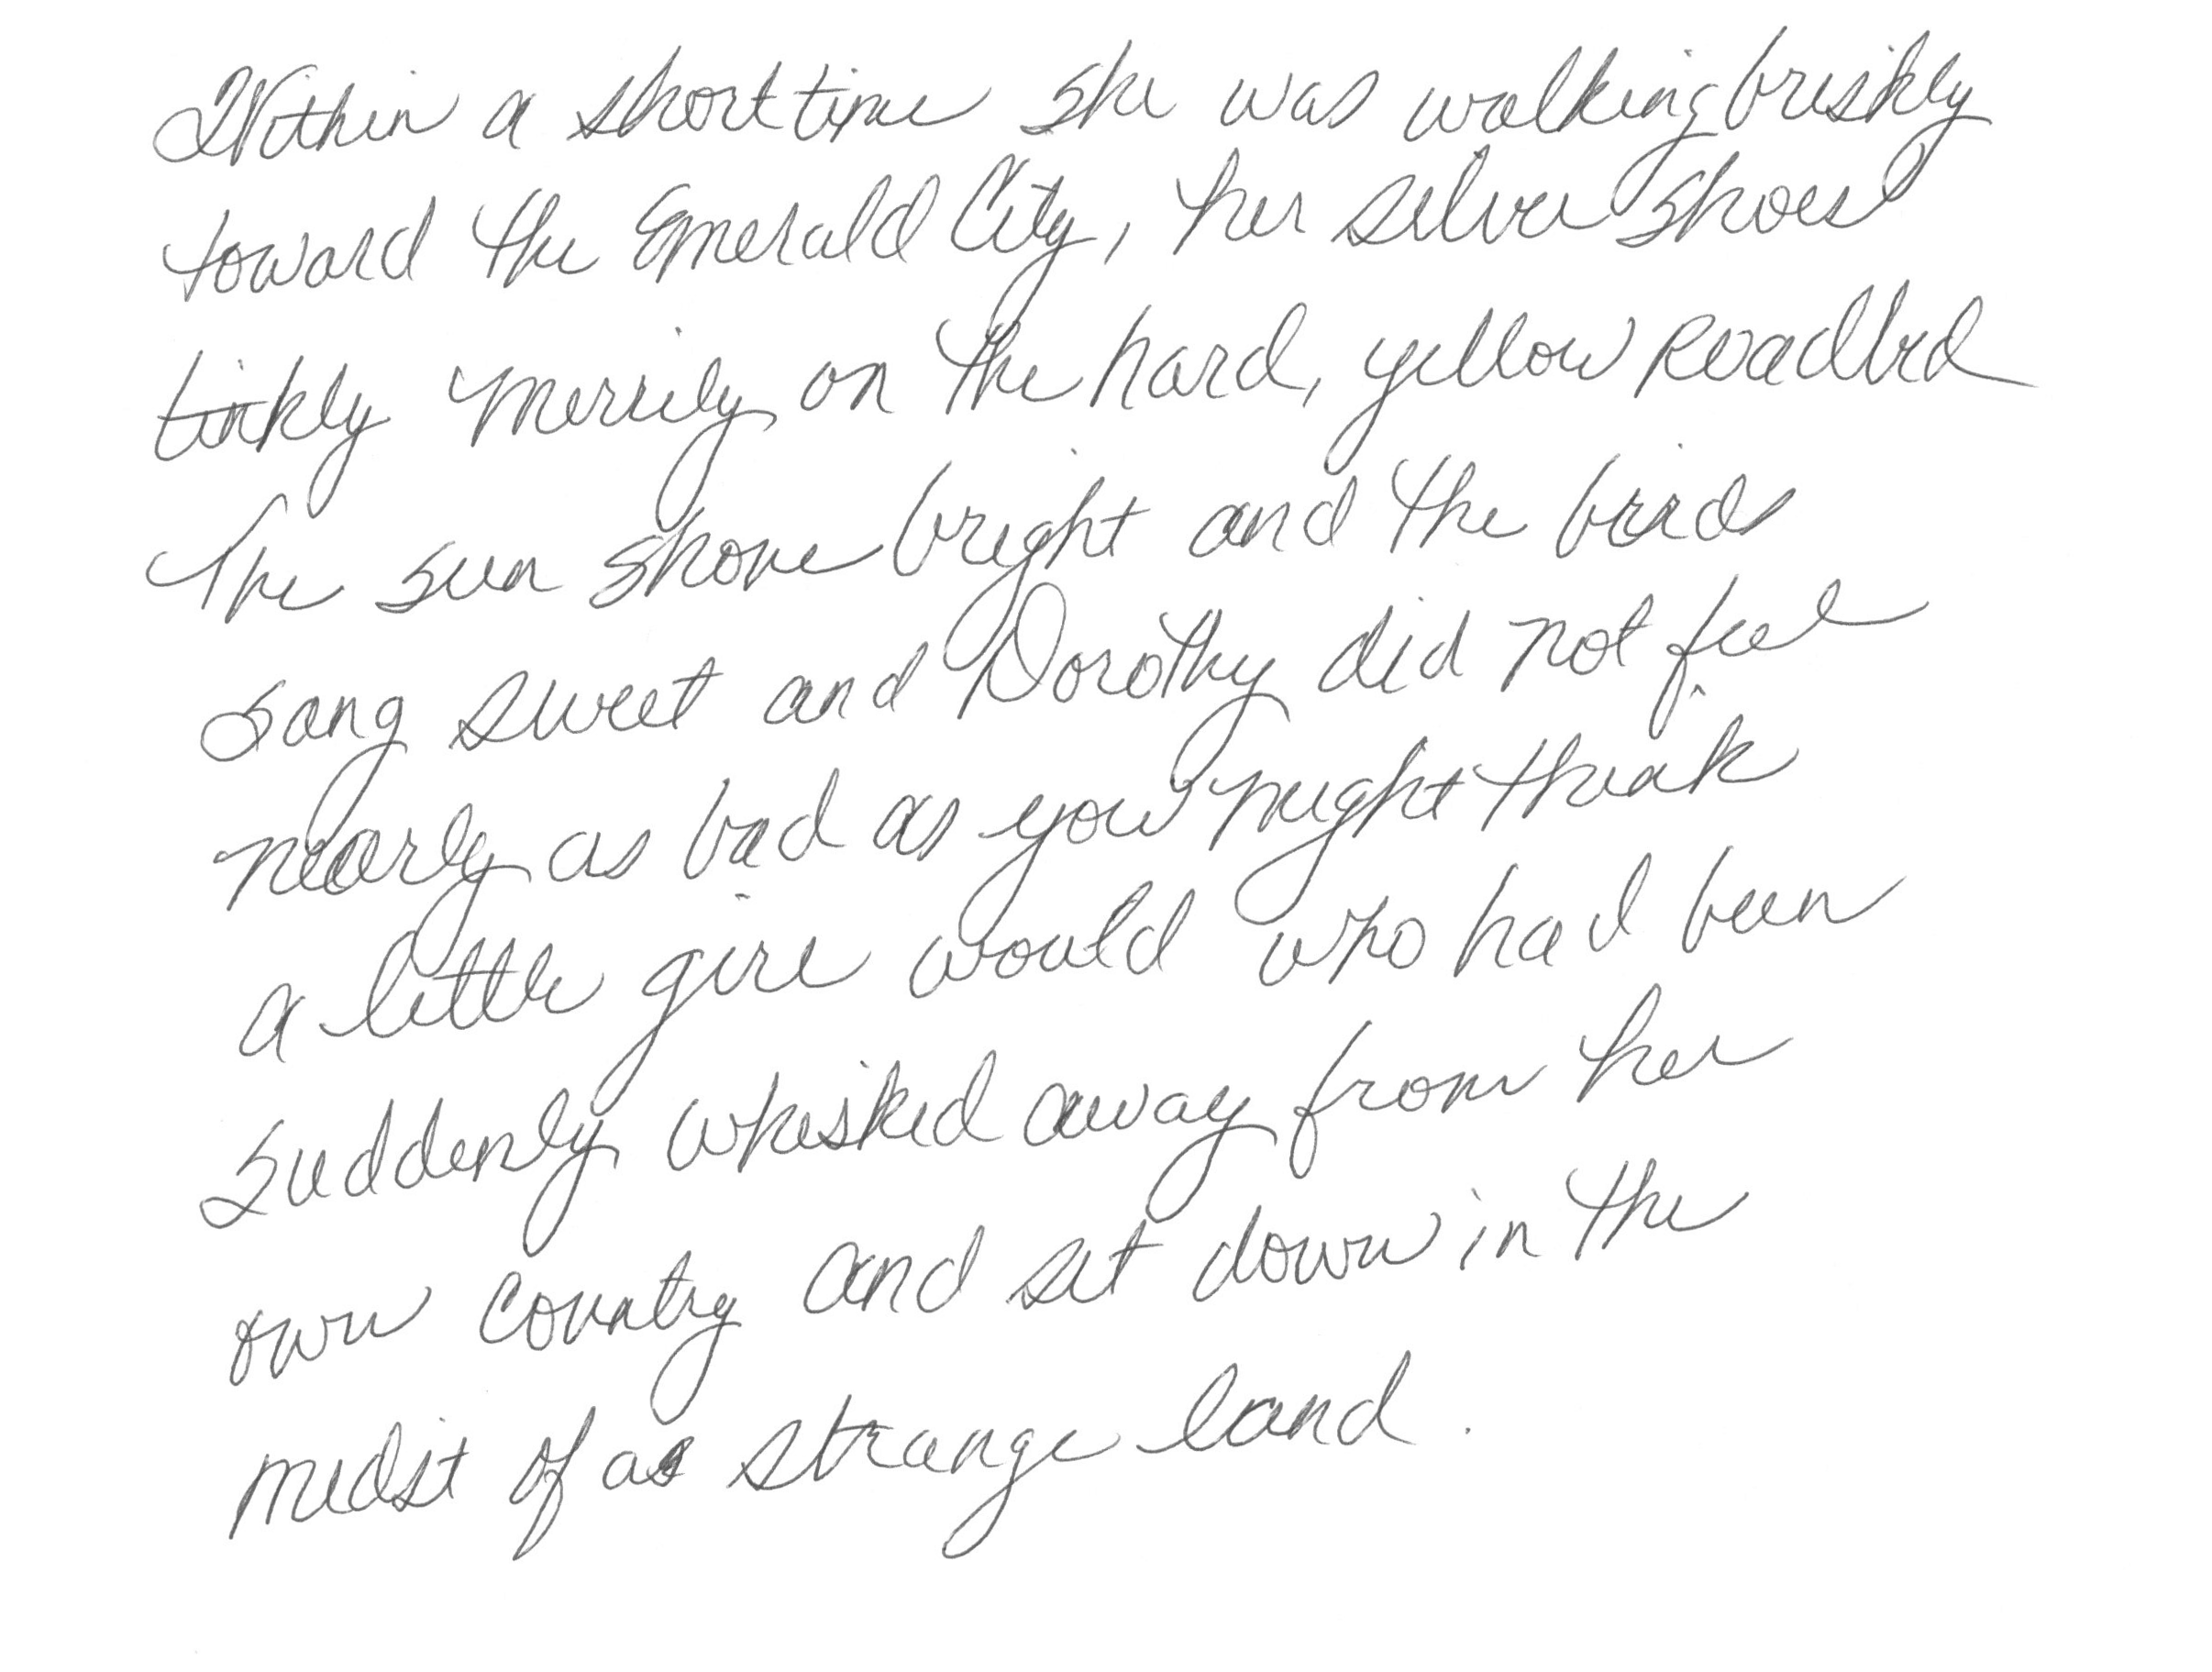 Within a short time she was walking briskly
toward the Emerald City, her silver shoes
tinkly merrily on the hard, yellow Roadbed
The sun shone bright and the birds
sang sweet and Dorothy did not feel
nearly as bad as you might think
a little girl would who had been
suddenly whisked away from her
own country and set down in the
midst of a strange land.